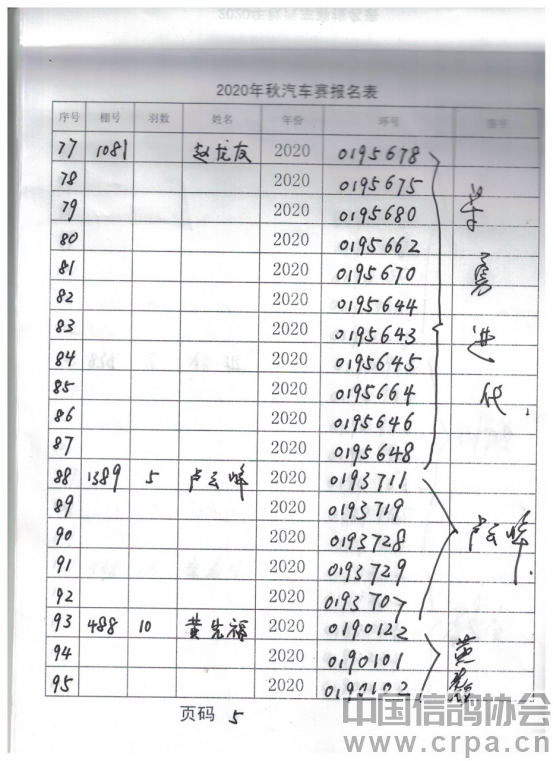 2020年秋汽车赛报名表
序号 棚号 羽数 姓名 年份 环号 签字
77 1081 赵龙友 2020 0195678
78 2020 0195675
79 2020 0195680
80 2020 0195662
81 2020 0195670
82 2020 0195644
83 2020 0195643
84 2020 0195645
85 2020 0195664
86 2020 0195646
87 2020 0195648
88 1389 5 卢云峰 2020 0193711
89 2020 0193719
90 2020 0193728
91 2020 0193729
92 2020 0193707
93 488 10 黄先福 2020 0190122
94 2020 0190101
95 2020 0190102
勇进代
卢云峰
黄
页码 5
中国信鸽协会
www.crpa.cn